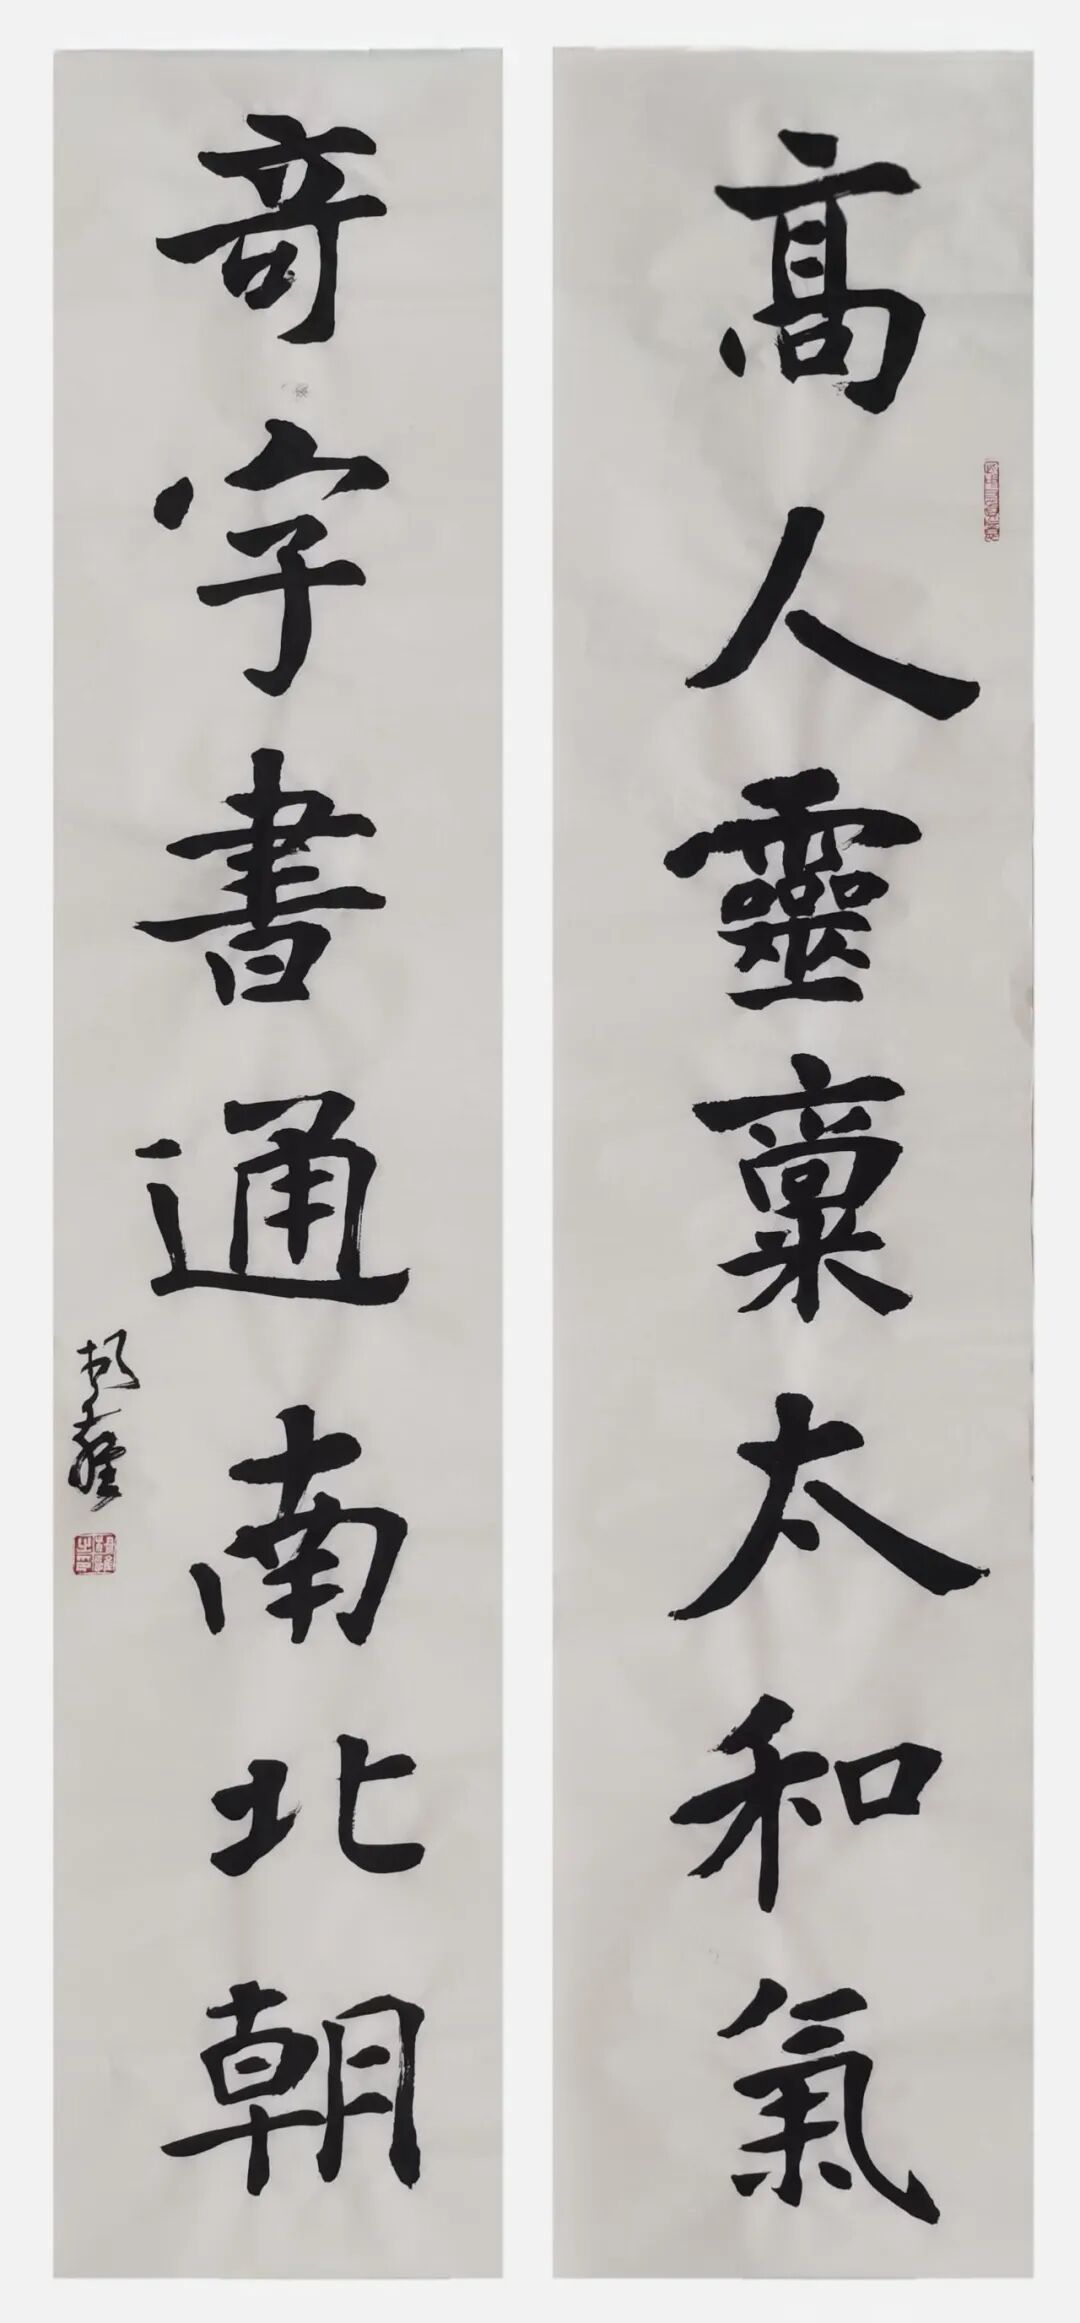 高人靈稟太和氣
奇字書通南北朝